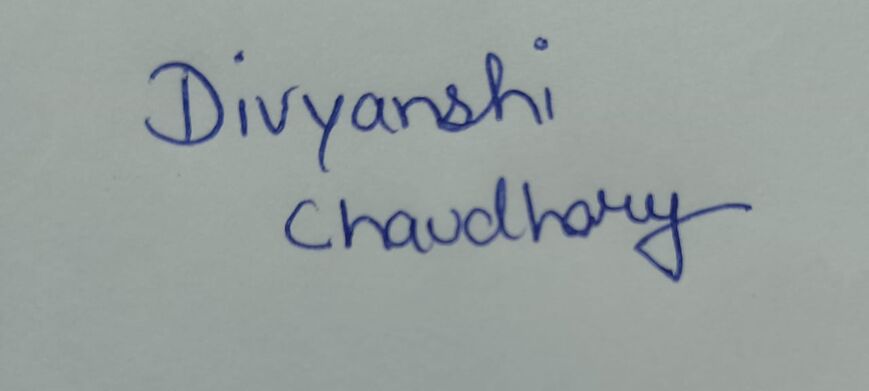 Divyanshi
Chaudhary